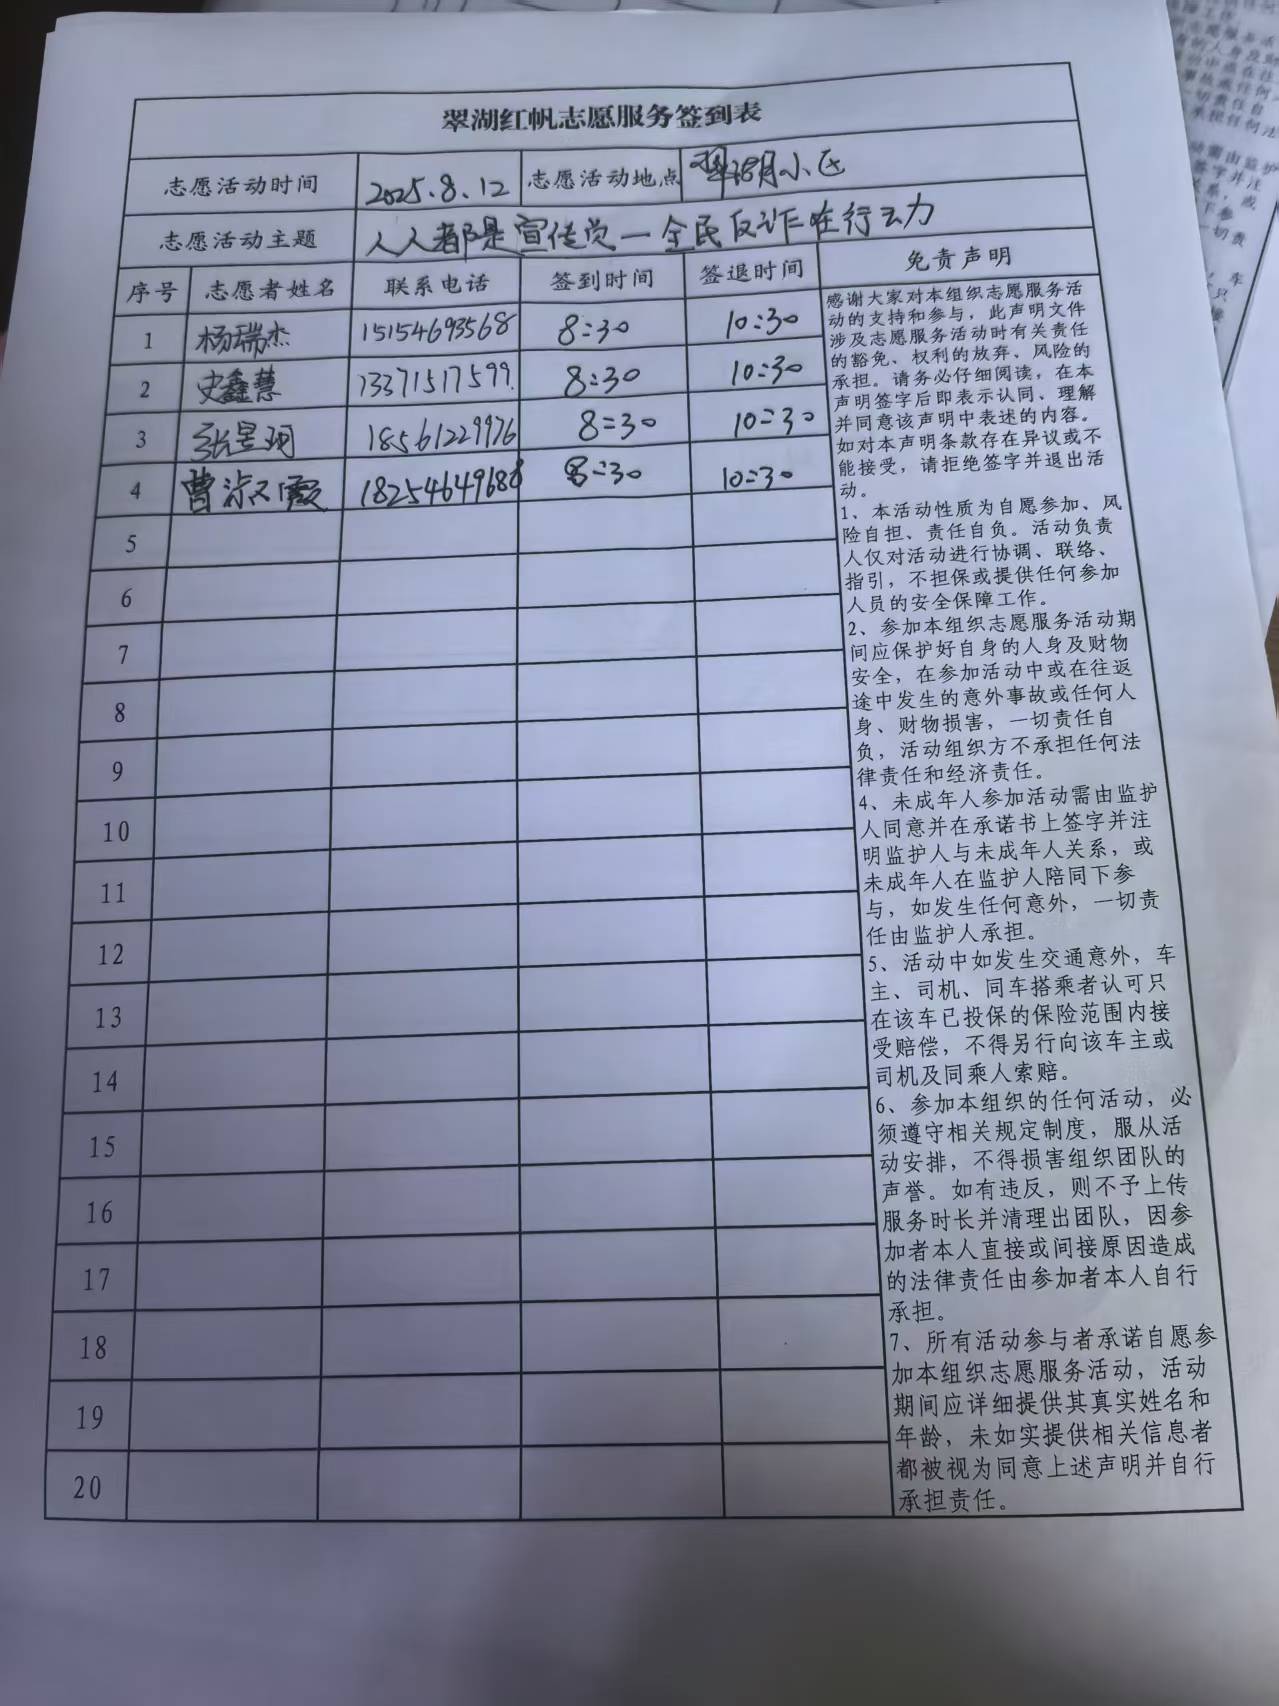 翠湖红帆志愿服务签到表
志愿活动时间 2025.8.12 志愿活动地点 翠湖小区
志愿活动主题 人人都是宣传员—全民反诈在行动
序号 志愿者姓名 联系电话 签到时间 签退时间 免责声明
1 杨瑞杰 15154693568 8:30 10:30
2 史鑫慧 13371517599 8:30 10:30
3 张昱玥 18561229976 8:30 10:30
4 曹淑霞 18254649688 8:30 10:30
5
6
7
8
9
10
11
12
13
14
15
16
17
18
19
20
感谢大家对本组织志愿服务活
动的支持和参与，此声明文件
涉及志愿服务活动时有关责任
的豁免、权利的放弃、风险的
承担。请务必仔细阅读，在本
声明签字后即表示认同、理解
并同意该声明中表述的内容。
如对本声明条款存在异议或不
能接受，请拒绝签字并退出活
动。
1、本活动性质为自愿参加、风
险自担、责任自负。活动负责
人仅对活动进行协调、联络、
指引，不担保或提供任何参加
人员的安全保障工作。
2、参加本组织志愿服务活动期
间应保护好自身的人身及财物
安全，在参加活动中或在往返
途中发生的意外事故或任何人
身、财物损害，一切责任自
负，活动组织方不承担任何法
律责任和经济责任。
4、未成年人参加活动需由监护
人同意并在承诺书上签字并注
明监护人与未成年人关系，或
未成年人在监护人陪同下参
与，如发生任何意外，一切责
任由监护人承担。
5、活动中如发生交通意外，车
主、司机、同车搭乘者认可只
在该车已投保的保险范围内接
受赔偿，不得另行向该车主或
司机及同乘人索赔。
6、参加本组织的任何活动，必
须遵守相关规定制度，服从活
动安排，不得损害组织团队的
声誉。如有违反，则不予上传
服务时长并清理出团队，因参
加者本人直接或间接原因造成
的法律责任由参加者本人自行
承担。
7、所有活动参与者承诺自愿参
加本组织志愿服务活动，活动
期间应详细提供其真实姓名和
年龄，未如实提供相关信息者
都被视为同意上述声明并自行
承担责任。